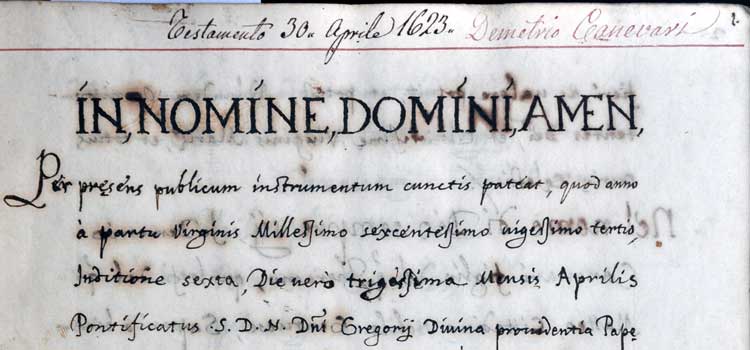 Testamento 30„ Aprile 1623„ Demetrio Canevari
IN, NOMINE, DOMINI, AMEN,
Per pręsens publicum instrumentum cunctis pateat, quod anno
à partu Virginis Millessimo sexcentessimo vigessimo tertio,
Inditione sexta, Die verò trigessima Mensis Aprilis
Pontificatus .S. D. N. Dnī Gregorij Divina providentia Papę